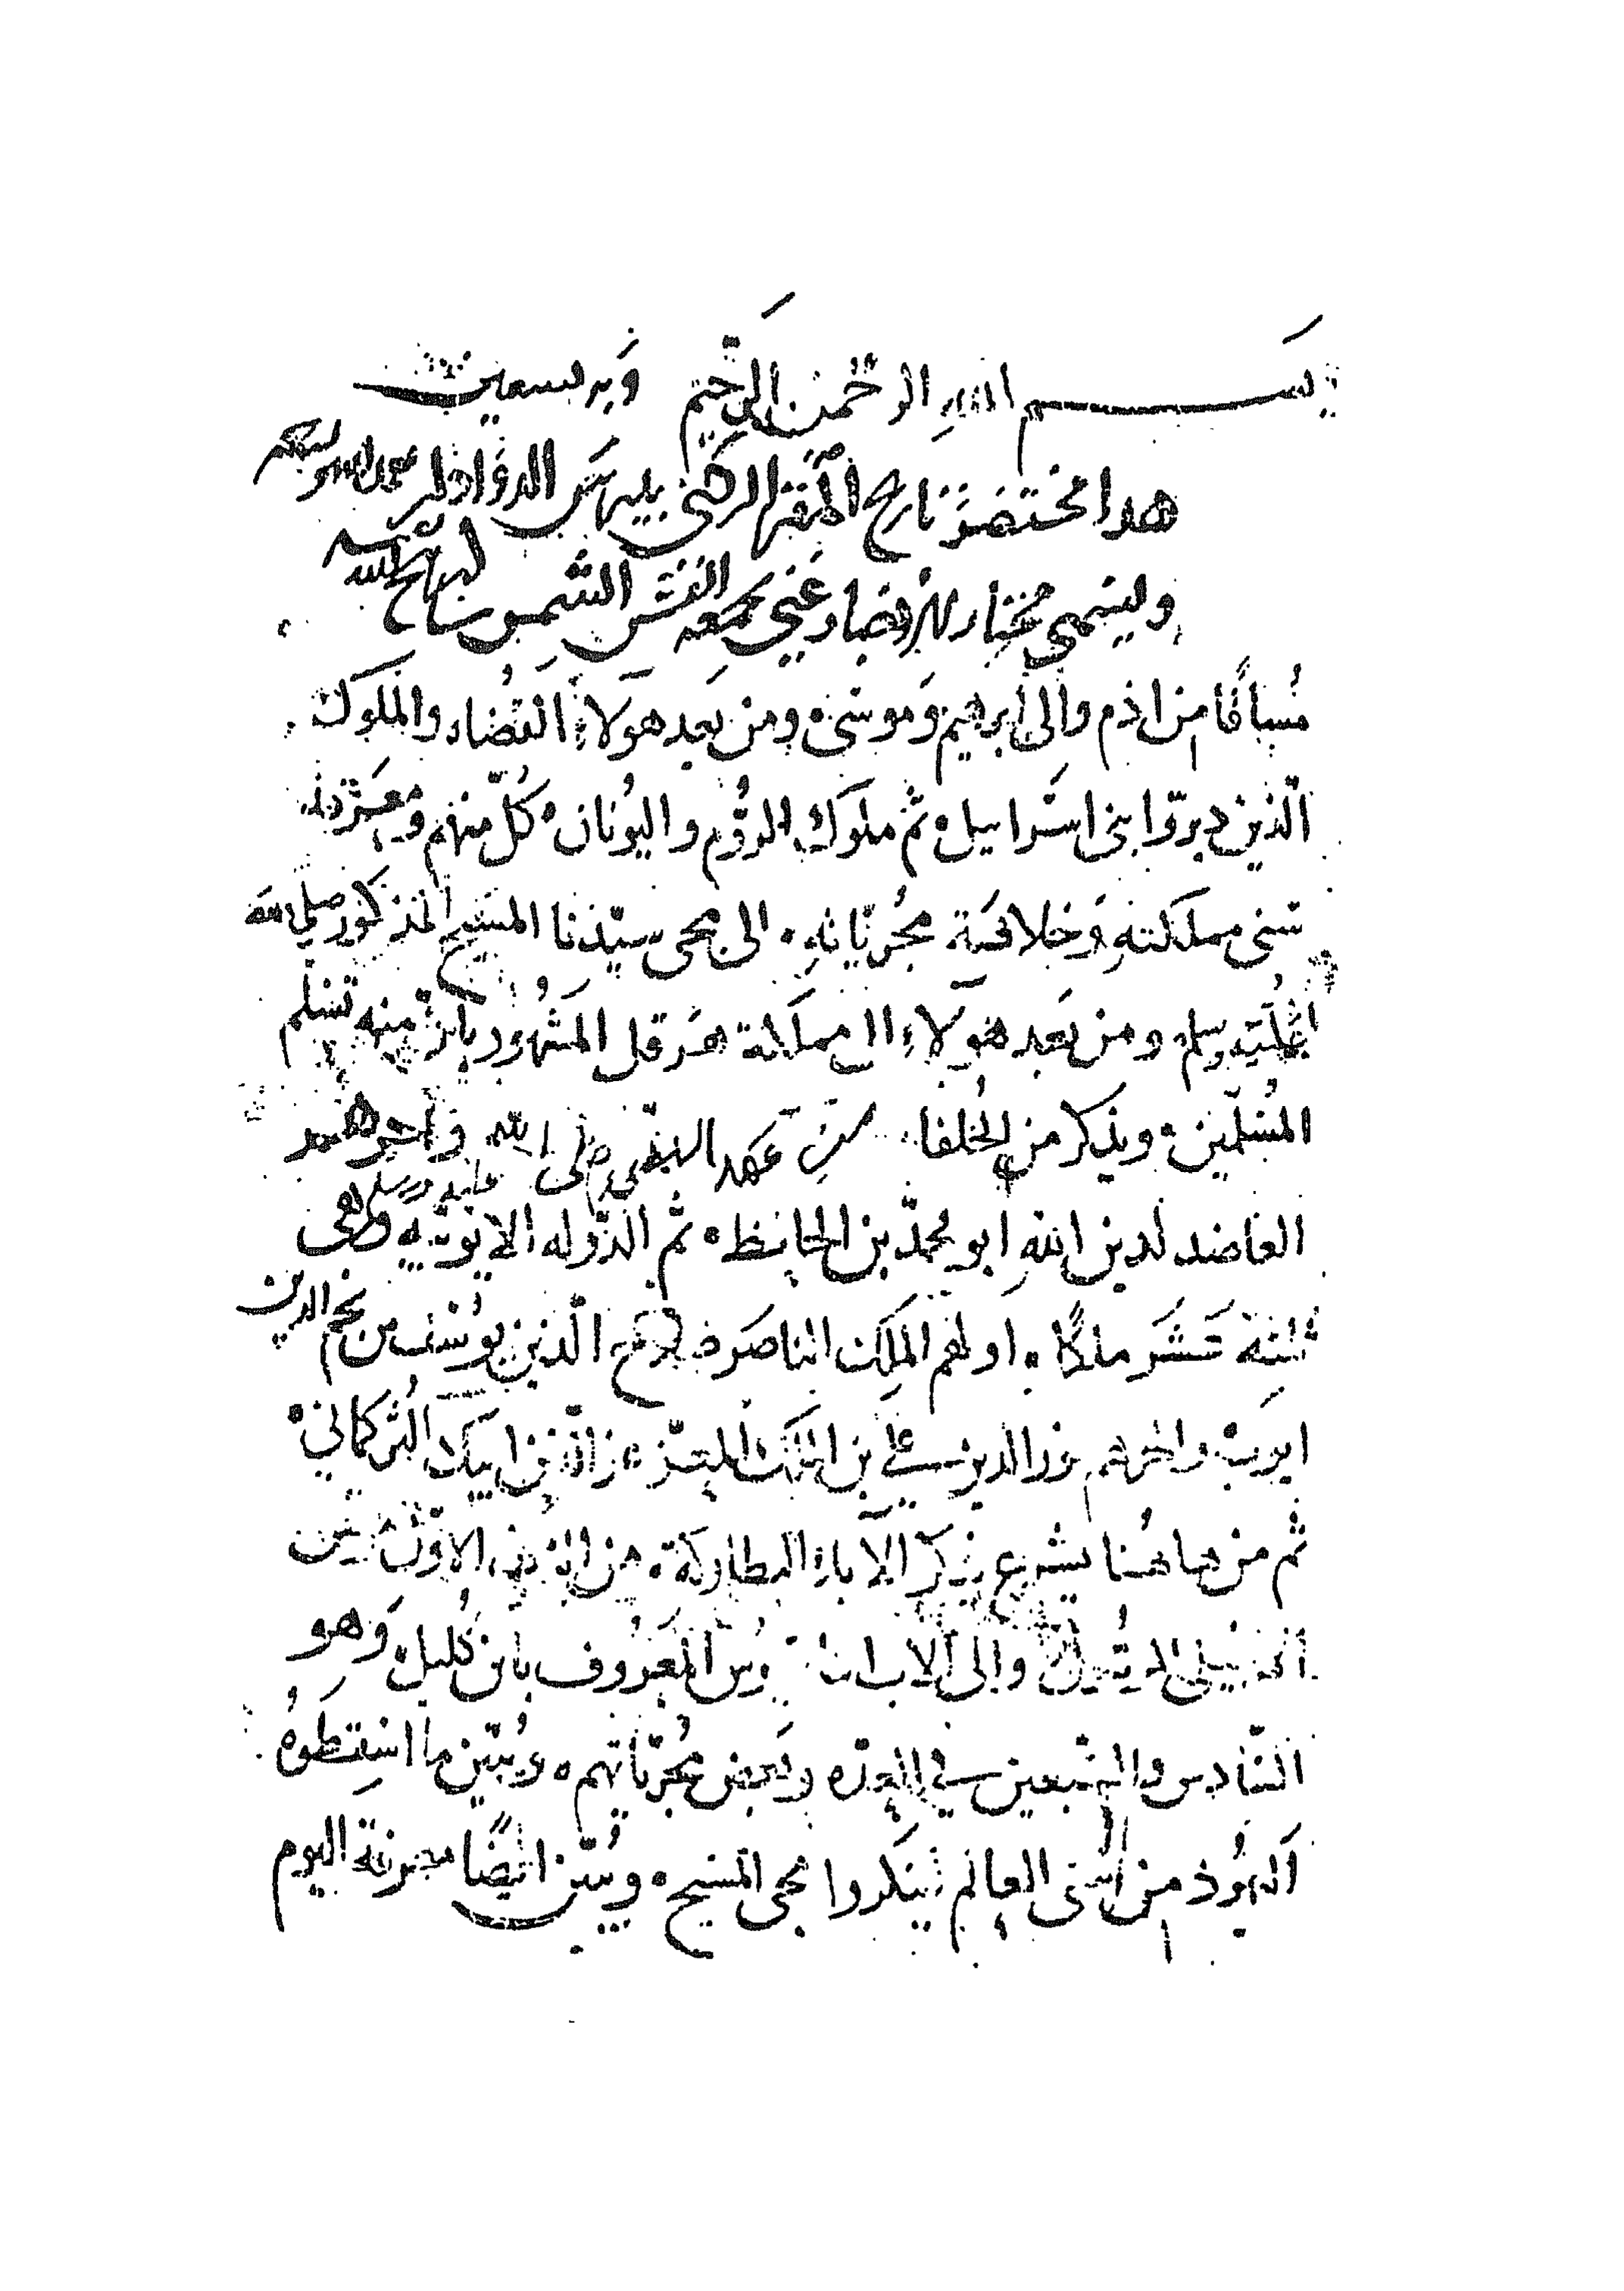 بسم الله الرحمن الرحيم وبه نستعين
هدا مختصر تاريخ المقر الركني بيبرس الدوادار
ويسمى مختار الاخبار عني بجمعه القس الشمس
مُساقًا من ادم والى ابرهيم وموسى ومن بعد هولاءِ القضاه والملوك
الّذين دبرّوا بنى اسراييل ثم ملوك الروُّم واليُونان كُل منهم ومعرفة
سنى مملكته وخلافة مجُريّاتهِ الى مجى سيّدنا المسيح المذكور صلى الله
عليه وسلم ومن بَعد هولاءِ الى مملكة هرقل المشهُور بان منه تسلم
المُسلمين ويذكر من الخُلفا من عهد النبى صلى الله عليه وسلم واخرهم
العاضد لدين اللهِ ابو محمّد بن الحافظ ثُم الدّوله الايوبيّه وهى
ثلثة عشَر ملكًا اولهم الملِك الناصر صلاح الدّين يوُسف بن نجم الدين
ايوب واخرهم نور الدين على بن الملك المعزّ عز الدين ايبك التُركماني
ثم من هاهُنا يشرع بذكر الآباءِ البطاركة من الاول مرقس
الانجيلى الرسُول والى الاب المعرُوف بابن كُليل وهو
السّادس والسّبعين في العدّه وبعض مجُريّاتهم ويُبيّن ما اسقطوهُ
اليهُود من سنى العالم لينكروا مجى المسيح ويُبيّن ايضًا معرفة اليوم